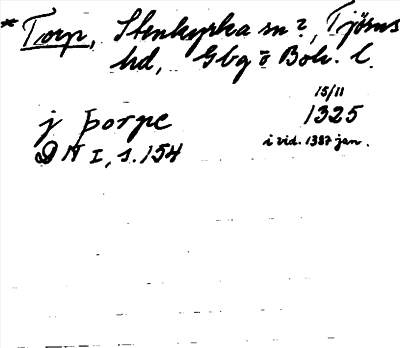 * Torp, Stenkyrka sn?, Tjörns
hd, Gbg o Boh. l.
15/11
j þorpe 1325
DN I, s. 154 i vid. 1387 jan.